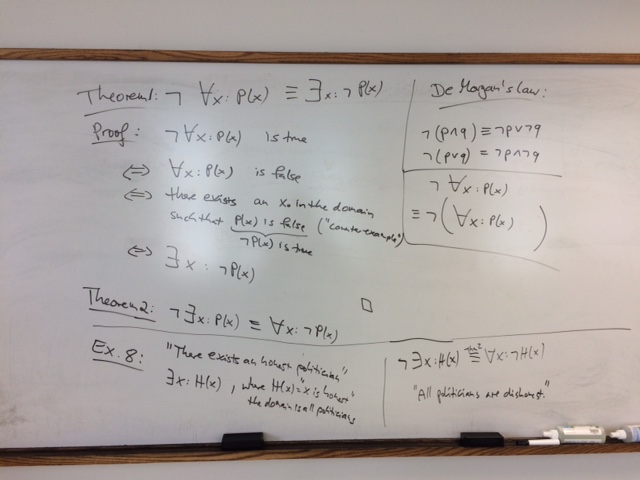 Theorem1: ¬ ∀x: P(x) ≡ ∃x: ¬P(x)
Proof: ¬∀x: P(x) is true
⇔ ∀x: P(x) is false
⇔ there exists an x₀ in the domain
such that P(x) is false ("counterexample")
¬P(x) is true
⇔ ∃x : ¬P(x)
□
Theorem2: ¬∃x: P(x) ≡ ∀x: ¬P(x)
De Morgan's law:
¬(p∧q) ≡ ¬p∨¬q
¬(p∨q) ≡ ¬p∧¬q
¬∀x: P(x)
≡ ¬(∀x: P(x))
Ex. 8: "There exists an honest politician"
∃x: H(x), where H(x)="x is honest"
the domain is all politicians
¬∃x: H(x) ≡ ∀x: ¬H(x)
"All politicians are dishonest."